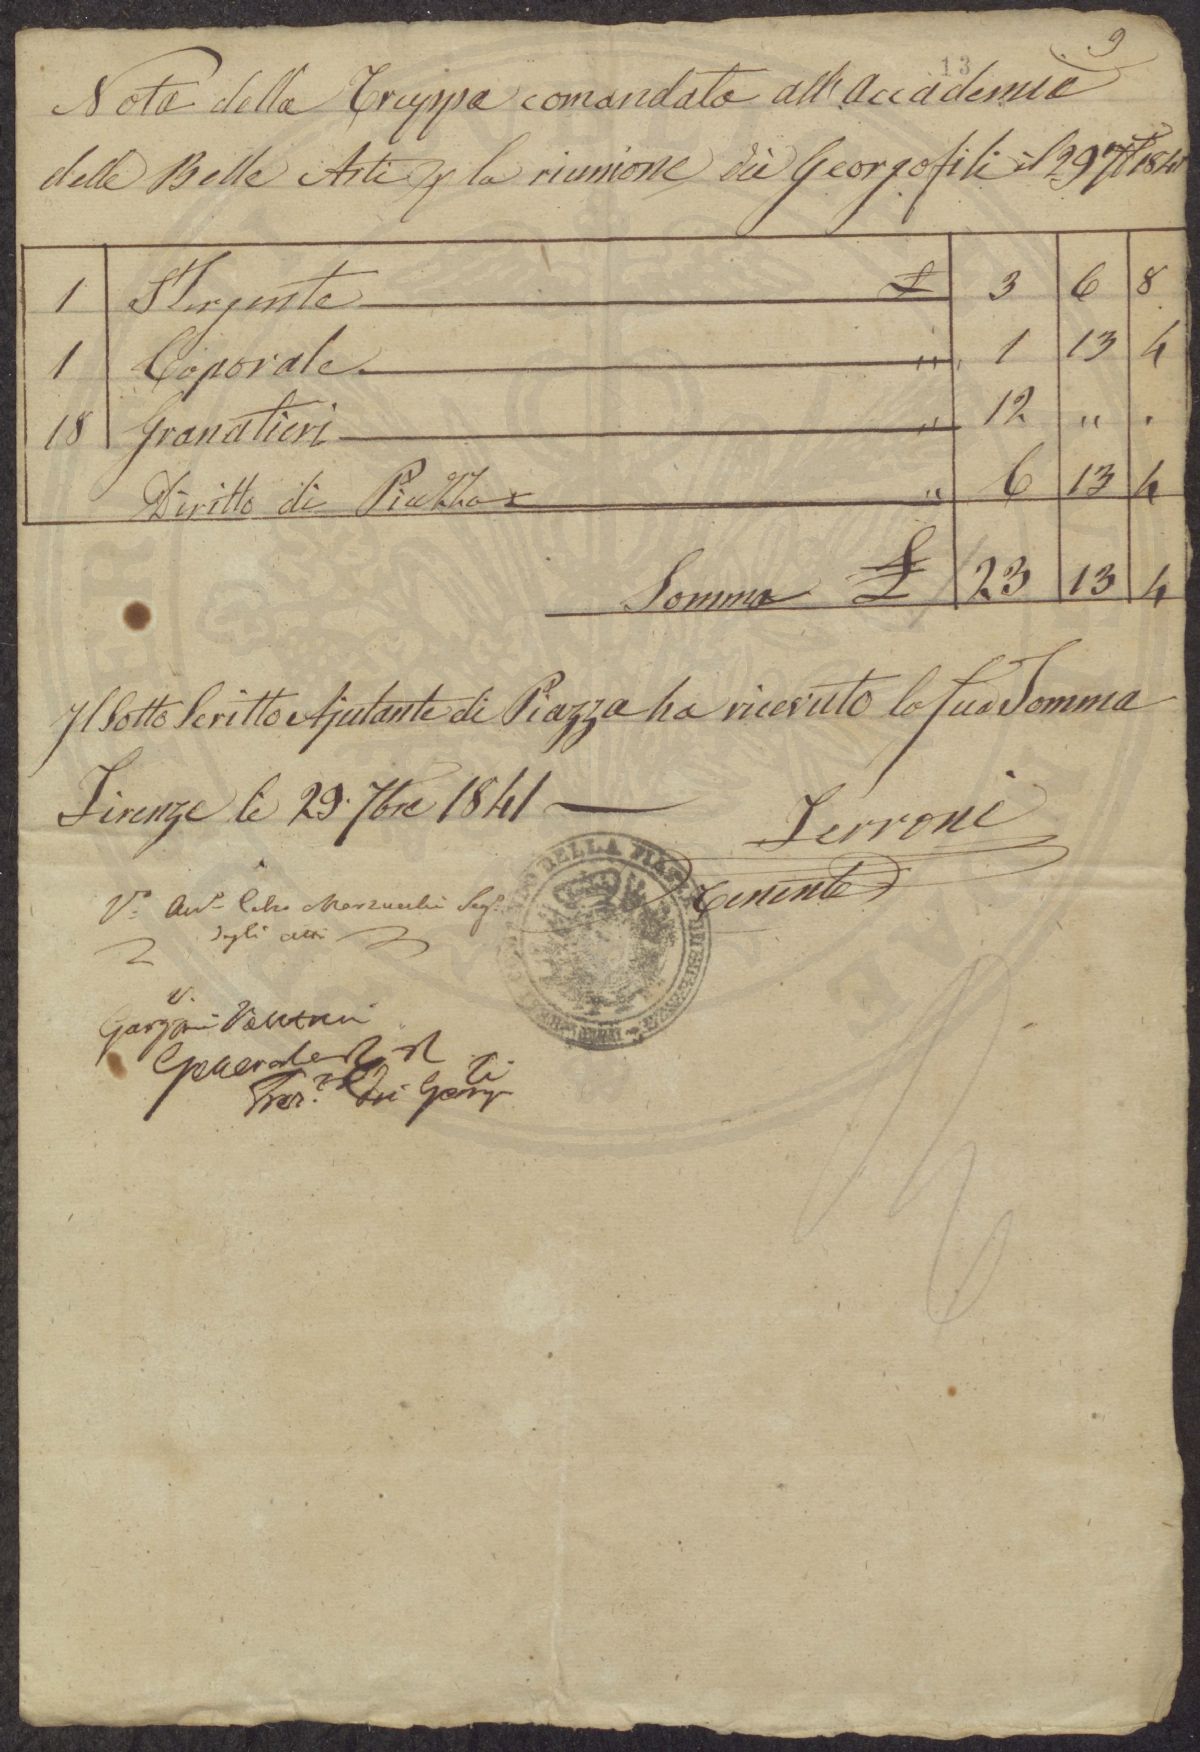 9
13
Nota della Truppa comandata all'Accademia
delle Belle Arti p la riunione dei Georgofili il 29 7bre 1841
1 Sergente £ 3 6 8
1 Caporale " 1 13 4
18 Granatieri " 12 " .
Diritto di Piazza " 6 13 4
Somma £ 23 13 4
Il Sotto Scritto Ajutante di Piazza ha ricevuto la sua Somma
Firenze le 29. 7bre 1841
Ferroni
Tenente
V.o Avv. Celso Marzucchi Seg.
degli atti
v.
Gargani Valeriani
DELLA PIAZZA